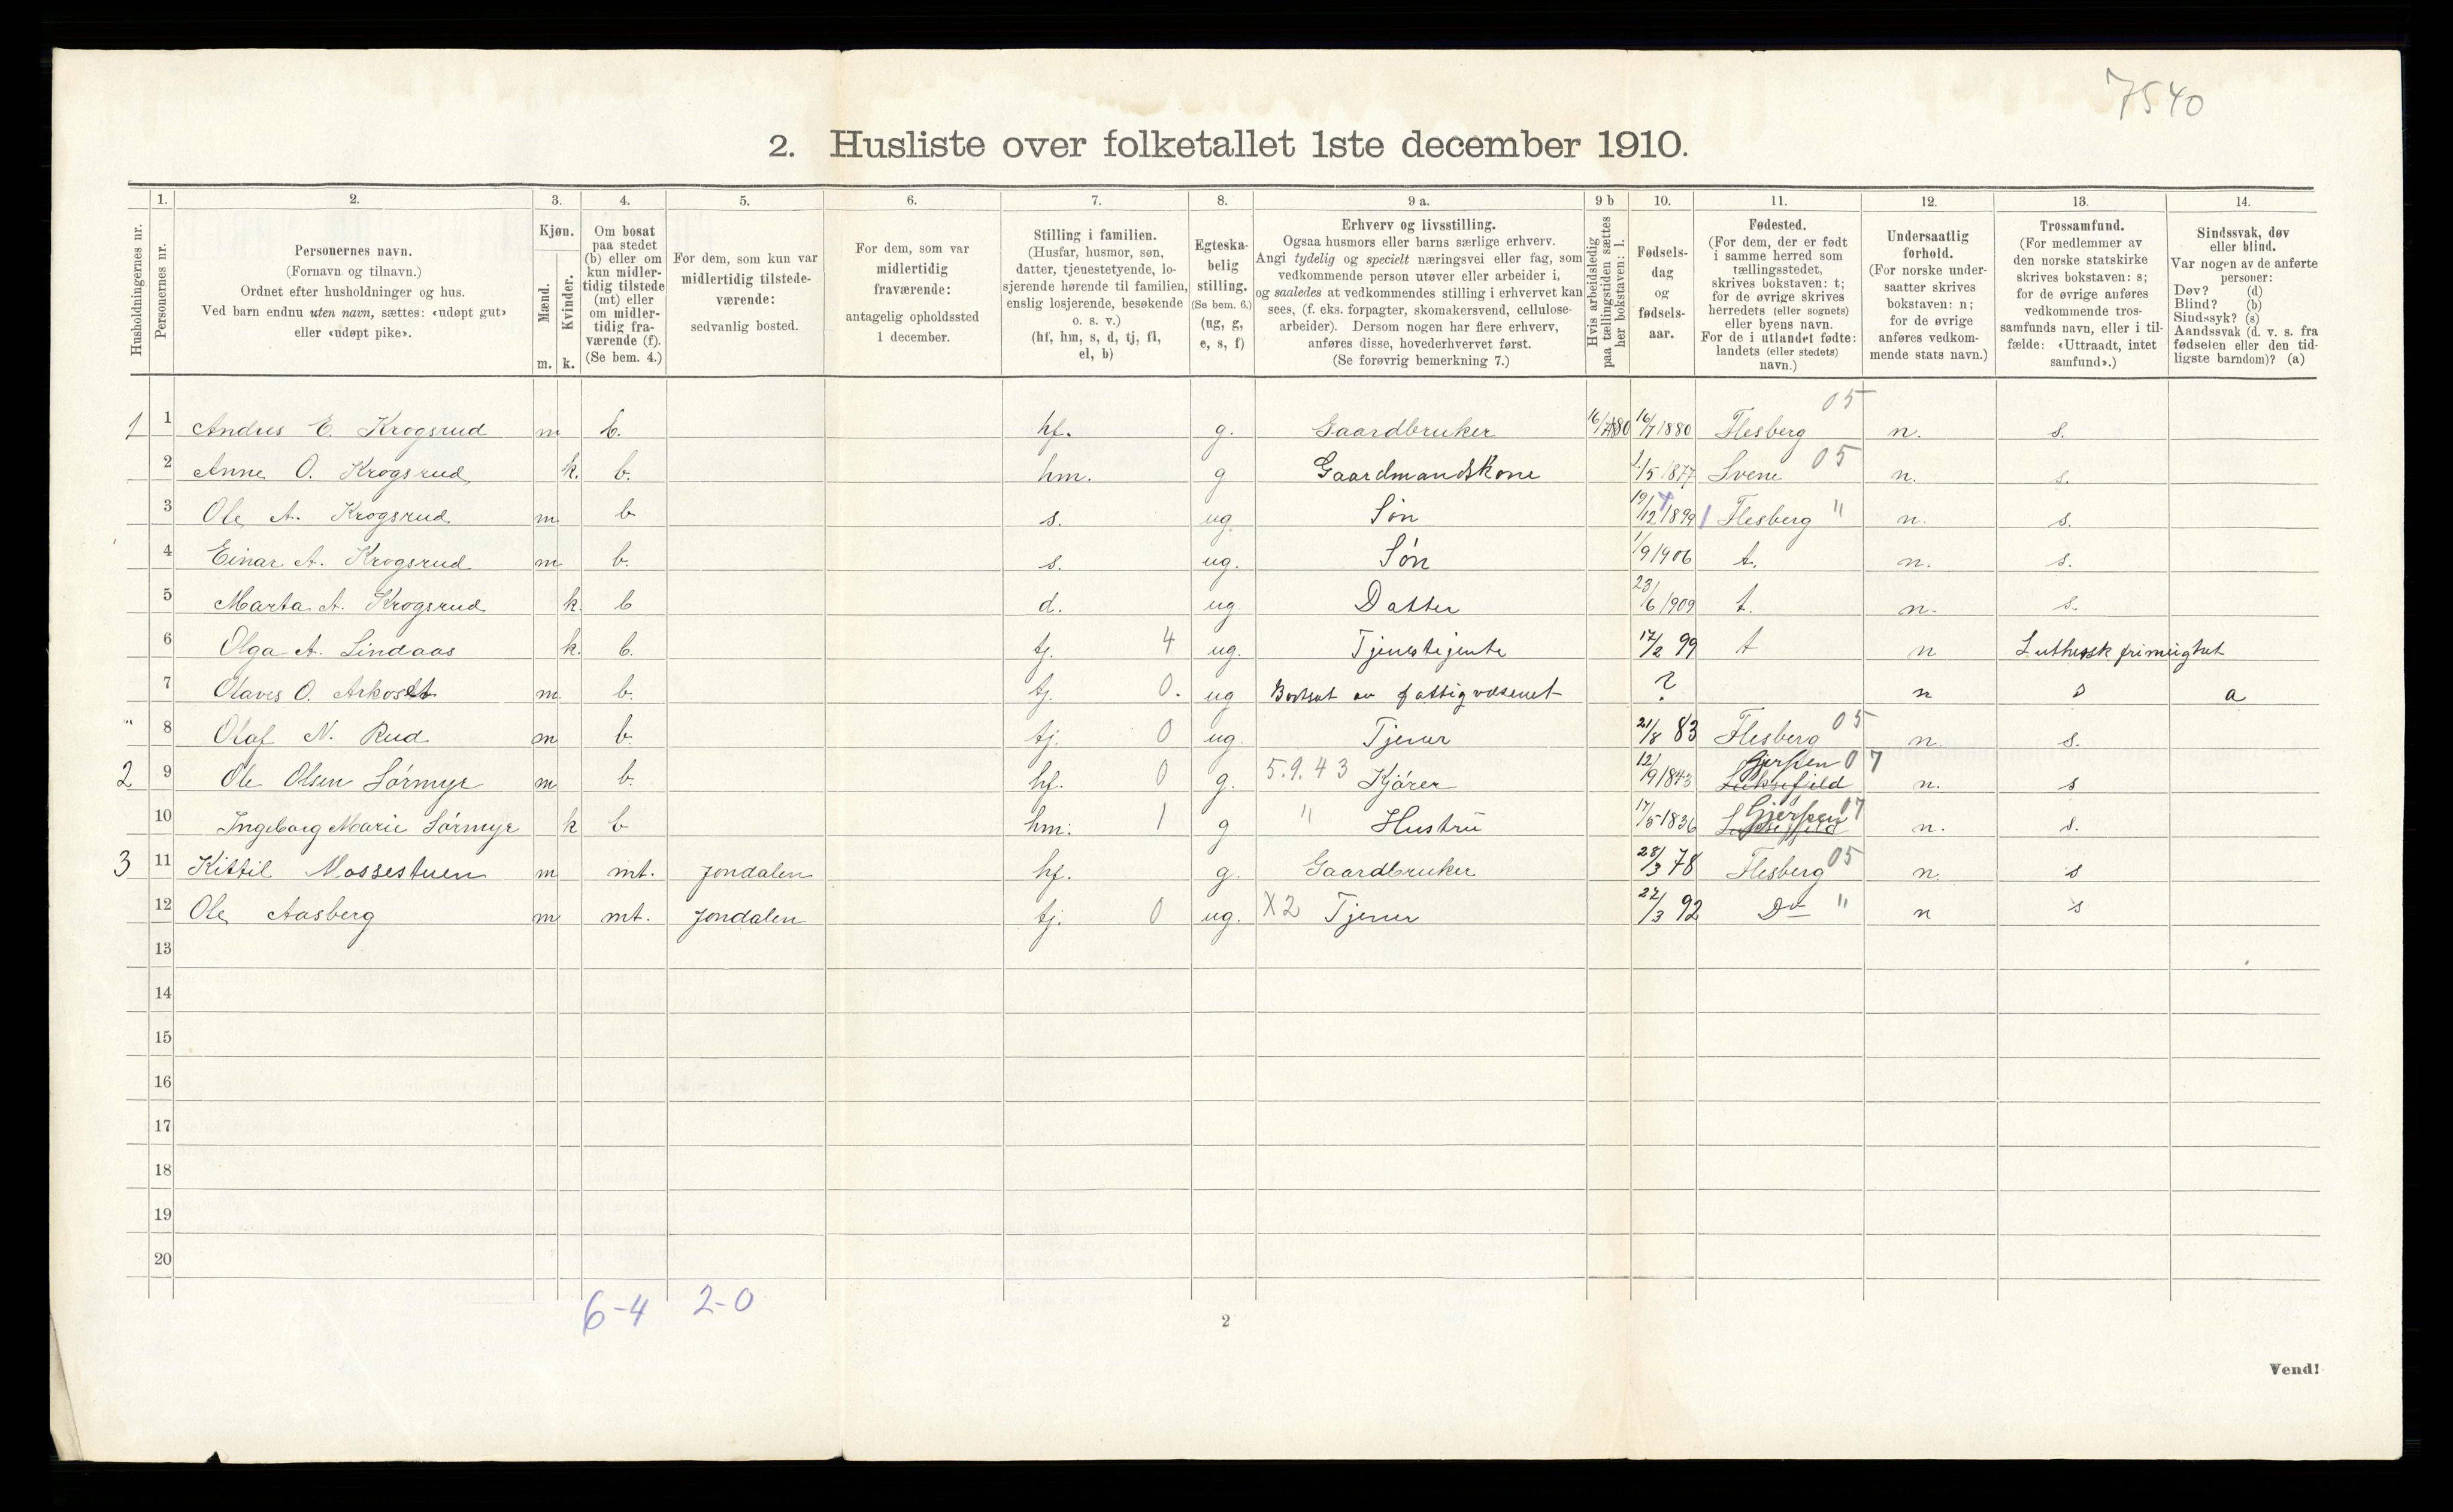 7540
2. Husliste over folketallet 1ste december 1910.
Husholdningernes nr.
1.
Personernes nr.
2.
Personernes navn.
(Fornavn og tilnavn.)
Ordnet efter husholdninger og hus.
Ved barn endnu uten navn, sættes: «udøpt gut»
eller «udøpt pike».
3.
Kjøn.
Mænd.
Kvinder.
m. k.
4.
Om bosat
paa stedet
(b) eller om
kun midler-
tidig tilstede
(mt) eller
om midler-
tidig fra-
værende (f).
(Se bem. 4.)
5.
For dem, som kun var
midlertidig tilstede-
værende:
sedvanlig bosted.
6.
For dem, som var
midlertidig
fraværende:
antagelig opholdssted
1 december.
7.
Stilling i familien.
(Husfar, husmor, søn,
datter, tjenestetyende, lo-
sjerende hørende til familien,
enslig losjerende, besøkende
o. s. v.)
(hf, hm, s, d, tj, fl,
el, b)
8.
Egteska-
belig
stilling.
(Se bem. 6.)
(ug, g,
e, s, f)
9 a.
Erhverv og livsstilling.
Ogsaa husmors eller barns særlige erhverv.
Angi tydelig og specielt næringsvei eller fag, som
vedkommende person utøver eller arbeider i,
og saaledes at vedkommendes stilling i erhvervet kan
sees, (f. eks. forpagter, skomakersvend, cellulose-
arbeider). Dersom nogen har flere erhverv,
anføres disse, hovederhvervet først.
(Se forøvrig bemerkning 7.)
9 b
Hvis arbeidsledig
paa tællingstiden sættes
her bokstaven: l.
10.
Fødsels-
dag
og
fødsels-
aar.
11.
Fødested.
(For dem, der er født
i samme herred som
tællingsstedet,
skrives bokstaven: t;
for de øvrige skrives
herredets (eller sognets)
eller byens navn.
For de i utlandet fødte:
landets (eller stedets)
navn.)
12.
Undersaatlig
forhold.
(For norske under-
saatter skrives
bokstaven: n;
for de øvrige
anføres vedkom-
mende stats navn.)
13.
Trossamfund.
(For medlemmer av
den norske statskirke
skrives bokstaven: s;
for de øvrige anføres
vedkommende tros-
samfunds navn, eller i til-
fælde: «Uttraadt, intet
samfund».)
14.
Sindssvak, døv
eller blind.
Var nogen av de anførte
personer:
Døv? (d)
Blind? (b)
Sindssyk? (s)
Aandssvak (d. v. s. fra
fødselen eller den tid-
ligste barndom)? (a)
1 1 Andres E. Krogsrud m b. hf. g. Gaardbruker 16/7 1880 Flesberg 05 n. s.
2 Anne O. Krogsrud k. b. hm. g Gaardmandskone 1/5 1877 Svene 05 n. s.
3 Ole A. Krogsrud m b s. ug Søn 19/12 1899 Flesberg " n. s.
4 Einar A. Krogsrud m b. s. ug. Søn 1/9 1906 t. n. s.
5 Marta A. Krogsrud k. b d. ug Datter 23/6 1909 t. n. s.
6 Olga A. Lindaas k. b. tj. 4 ug. Tjenestejente 17/2 99 t n Luthersk frimeighet
7 Olaves O. m b. tj. 0. ug Bortsat av fattigvæsenet ? n s a
8 Olaf N. Rud m b. tj. 0 ug. Tjener 21/8 83 Flesberg 05 n. s.
2 9 Ole Olsen Sørmyr m b. hf. 0 g. 5.9.43 Kjører 12/9 1843 Gjerpen 07 n. s
10 Ingeborg Marie Sørmyr k b hm. 1 g " Hustru 17/5 1836 Gjerpen 07 n. s.
3 11 Kittil Mossestuen m mt. Jondalen hf. g. Gaardbruker 28/3 78 Flesberg 05 n. s
12 Ole Aasberg m mt. Jondalen tj. 0 ug. X2 Tjener 22/3 92 Do " n s
13
14
15
16
17
18
19
20
6-4 2-0
2
Vend!